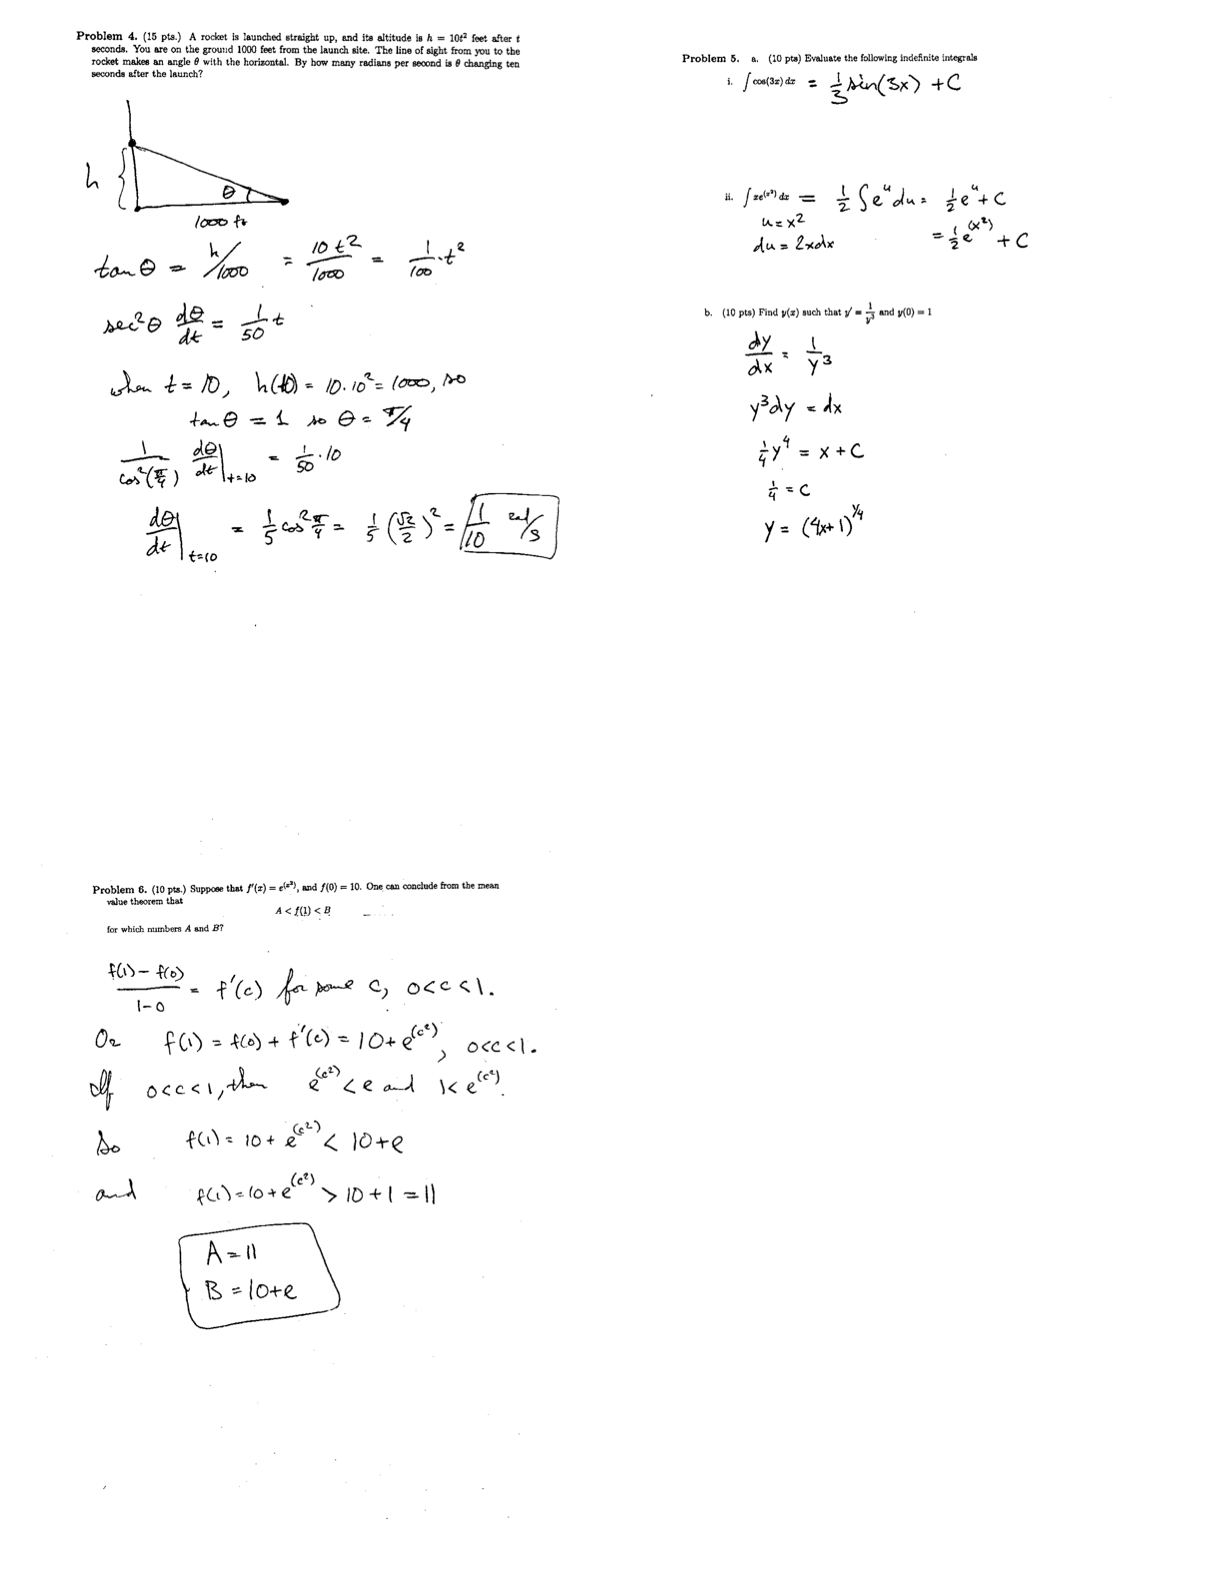 Problem 4. (15 pts.) A rocket is launched straight up, and its altitude is h = 10t² feet after t
seconds. You are on the ground 1000 feet from the launch site. The line of sight from you to the
rocket makes an angle θ with the horizontal. By how many radians per second is θ changing ten
seconds after the launch?
h
θ
1000 ft
tan θ = h/1000 = 10t²/1000 = 1/100 · t²
sec²θ dθ/dt = 1/50 t
when t = 10, h(10) = 10·10² = 1000, so
tan θ = 1 so θ = π/4
1/cos²(π/4) dθ/dt|t=10 = 1/50 · 10
dθ/dt|t=10 = 1/5 cos² π/4 = 1/5 (√2/2)² = 1/10 rad/s
Problem 5. a. (10 pts) Evaluate the following indefinite integrals
i. ∫ cos(3x) dx = 1/3 sin(3x) + C
ii. ∫ xe^(x²) dx = 1/2 ∫e^u du = 1/2 e^u + C
u = x²
du = 2xdx
= 1/2 e^(x²) + C
b. (10 pts) Find y(x) such that y′ = 1/y³ and y(0) = 1
dy/dx = 1/y³
y³dy = dx
1/4 y⁴ = x + C
1/4 = C
y = (4x+1)^1/4
Problem 6. (10 pts.) Suppose that f′(x) = e^(x²), and f(0) = 10. One can conclude from the mean
value theorem that
A < f(1) < B
for which numbers A and B?
f(1) − f(0)/1−0 = f′(c) for some c, 0<c<1.
Or f(1) = f(0) + f′(c) = 10 + e^(c²), 0<c<1.
If 0<c<1, then e^(c²) < e and 1 < e^(c²).
So f(1) = 10 + e^(c²) < 10+e
and f(1) = 10 + e^(c²) > 10 + 1 = 11
A = 11
B = 10+e